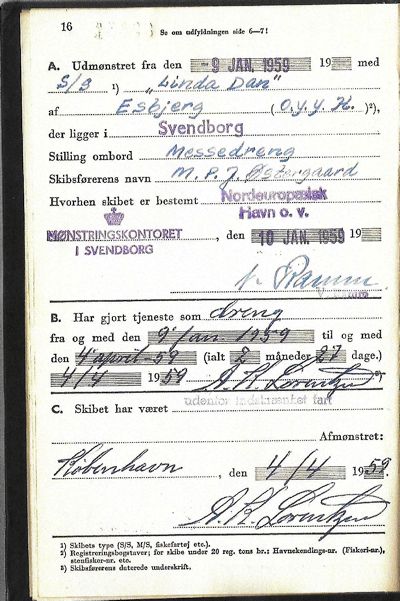 16
Se om udfyldningen side 6—7!
A. Udmønstret fra den 9 JAN. 1959 19 med
S/S ¹) „Linda Dan"
af Esbjerg (O.y.y.H.)²),
der ligger i Svendborg
Stilling ombord Messedreng
Skibsførerens navn M. P. J. Østergaard
Hvorhen skibet er bestemt Nordeuropæisk
Havn o. v.
MØNSTRINGSKONTORET
I SVENDBORG
, den 10 JAN. 1959 19
B. Har gjort tjeneste som dreng
fra og med den 9' jan. 1959 til og med
den 4' april - 59 (ialt 2 måneder 27 dage.)
4/4 1959 A. K. Lorentzen ³)
udenfor indskrænket fart
C. Skibet har været
Afmønstret:
København, den 4/4 1959.
A. K. Lorentzen
¹) Skibets type (S/S, M/S, fiskefartøj etc.).
²) Registreringsbogstaver; for skibe under 20 reg. tons br.: Havnekendings-nr. (Fiskeri-nr.),
stenfisker-nr. etc.
³) Skibsførerens daterede underskrift.